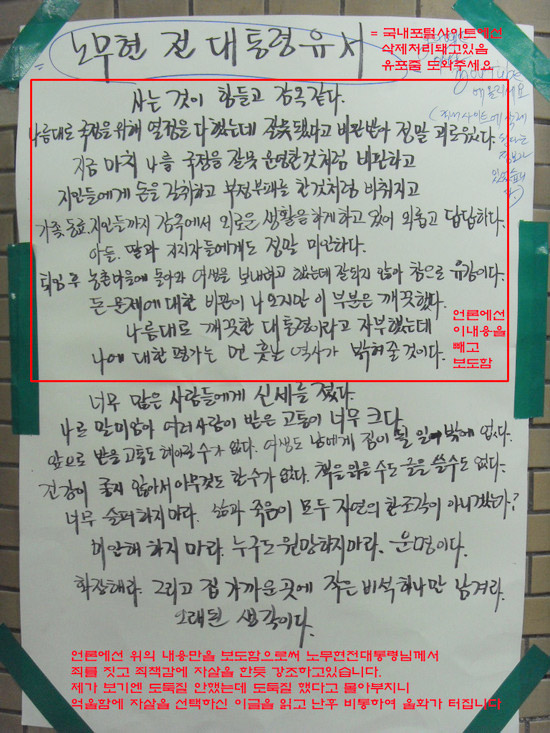 노무현 전 대통령 유서
= 국내포털사이트에선
삭제처리돼고있음
유포좀 도와주세요
You Tube
에 올리세요
사는 것이 힘들고 감옥같다.
나름대로 국정을 위해 열정을 다했는데 잘못됐다고 비판받아 정말 괴로웠다.
지금 마치 나를 국정을 잘못 운영한것처럼 비판하고
지인들에게 돈을 갈취하고 부정부패를 한것처럼 비춰지고
가족 동료, 지인들까지 감옥에서 외로운 생활을 하게 하고 있어 외롭고 답답하다.
아들, 딸과 지지자들에게도 정말 미안하다.
퇴임 후 농촌마을에 돌아와 여생을 보내려고 했는데 잘되지 않아 참으로 유감이다.
돈 문제에 대한 비판이 나오지만 이 부분은 깨끗했다.
나름대로 깨끗한 대통령이라고 자부했는데
나에 대한 평가는 먼 훗날 역사가 밝혀줄 것이다.
언론에선
이내용을
빼고
보도함
너무 많은 사람들에게 신세를 졌다.
나로 말미암아 여러사람이 받은 고통이 너무 크다
앞으로 받을 고통도 헤아릴 수가 없다. 여생도 남에게 짐이 될 일 밖에 없다.
건강이 좋지 않아서 아무것도 할 수가 없다. 책을 읽을 수도 글을 쓸 수도 없다.
너무 슬퍼하지 마라. 삶과 죽음이 모두 자연의 한 조각이 아니겠는가?
미안해 하지 마라. 누구도 원망하지 마라. 운명이다.
화장해라. 그리고 집 가까운 곳에 작은 비석 하나만 남겨라.
오래된 생각이다.
언론에선 위의 내용만을 보도함으로써 노무현전대통령님께서
죄를 짓고 죄책감에 자살을 한듯 강조하고있습니다.
제가 보기엔 도둑질 안했는데 도둑질 했다고 몰아부치니
억울함에 자살을 선택하신 이글을 읽고 난후 비통하여 울화가 터집니다